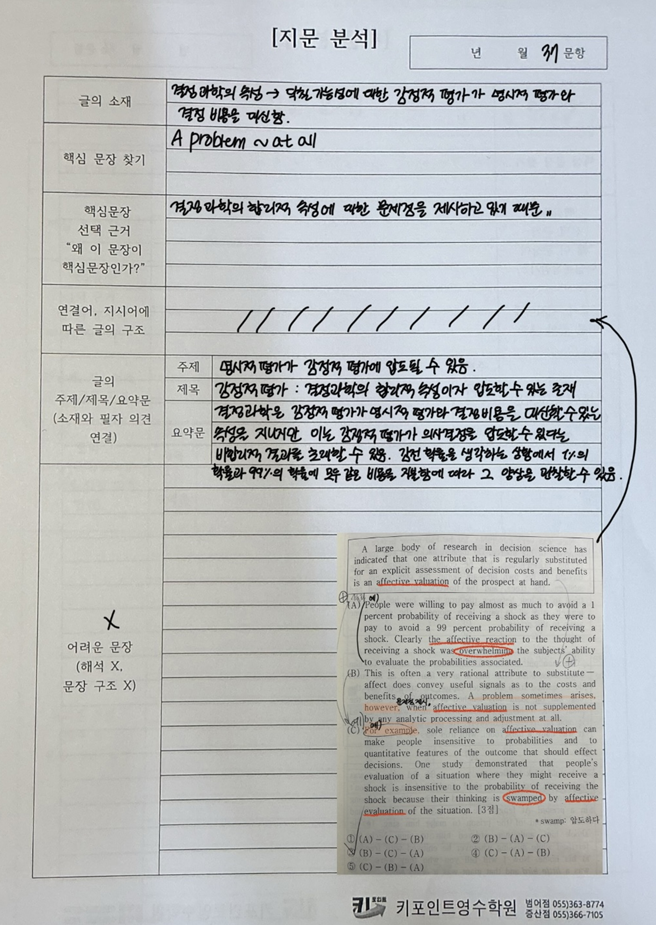 [지문 분석]
년 월 37 문항
글의 소재
결정 과학의 속성 → 닥친 가능성에 대한 감정적 평가가 명시적 평가와
결정 비용을 대신함.
핵심 문장 찾기
A problem ~ at all
핵심문장
선택 근거
"왜 이 문장이
핵심문장인가?"
결정 과학의 합리적 속성에 대한 문제점을 제시하고 있기 때문
연결어, 지시어에
따른 글의 구조
글의
주제/제목/요약문
(소재와 필자 의견
연결)
주제
명시적 평가가 감정적 평가에 압도될 수 있음.
제목
감정적 평가 : 결정과학의 합리적 속성이자 압도할 수 있는 존재
요약문
결정과학은 감정적 평가가 명시적 평가와 결정 비용을 대신할 수 있는
속성을 지니지만 이는 감정적 평가가 의사결정을 압도할 수 있다는
비합리적 결과를 초래할 수 있음. 감전 확률을 생각하는 상황에서 1%의
확률과 99%의 확률에 모두 같은 비용을 지불함에 따라 그 양상을 면할 수 있음.
X
어려운 문장
(해석 X,
문장 구조 X)
A large body of research in decision science has
indicated that one attribute that is regularly substituted
for an explicit assessment of decision costs and benefits
is an affective valuation of the prospect at hand.
예)
(A) People were willing to pay almost as much to avoid a 1
percent probability of receiving a shock as they were to
pay to avoid a 99 percent probability of receiving a
shock. Clearly the affective reaction to the thought of
receiving a shock was overwhelming the subjects' ability
to evaluate the probabilities associated.
(B) This is often a very rational attribute to substitute—
affect does convey useful signals as to the costs and
benefits of outcomes. A problem sometimes arises,
문제점 제시.
however, when affective valuation is not supplemented
by any analytic processing and adjustment at all.
예)
(C) For example, sole reliance on affective valuation can
make people insensitive to probabilities and to
quantitative features of the outcome that should effect
decisions. One study demonstrated that people's
evaluation of a situation where they might receive a
shock is insensitive to the probability of receiving the
shock because their thinking is swamped by affective
evaluation of the situation. [3점]
* swamp: 압도하다
① (A) - (C) - (B) ② (B) - (A) - (C)
③ (B) - (C) - (A) ④ (C) - (A) - (B)
⑤ (C) - (B) - (A)
키 포인트 키포인트영수학원 범어점 055)363-8774
증산점 055)366-7105